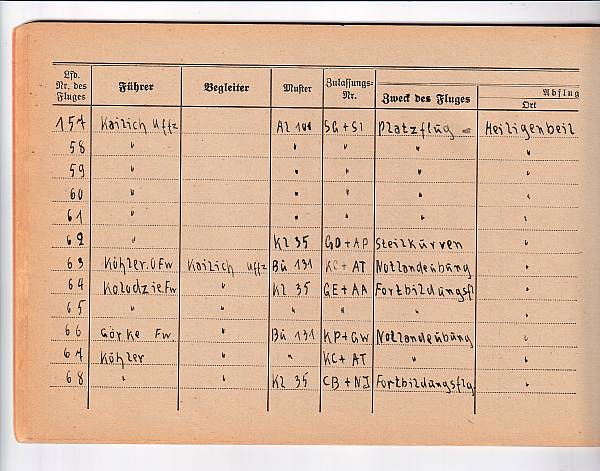 Lfd. Nr. des Fluges Führer Begleiter Muster Zulassungs-Nr. Zweck des Fluges Abflug Ort
157 Kailich Uffz Al 101 SG+SI Platzflüg = Heiligenbeil
58 " " " " "
59 " " " " "
60 " " " " "
61 " " " " "
62 " Kl 35 GO+AP Steilkürven "
63 Köhler.OFw Kailich Uffz Bü 131 KC+AT Notlandeübüng "
64 Kolodzie.Fw " Kl 35 GE+AA Fortbildüngsfl "
65 " " " " " "
66 Görke Fw. " Bü 131 KP+GW Notlandeübüng "
67 Köhler " " KC+AT " "
68 " " Kl 35 CB+NJ Fortbildüngsflg "